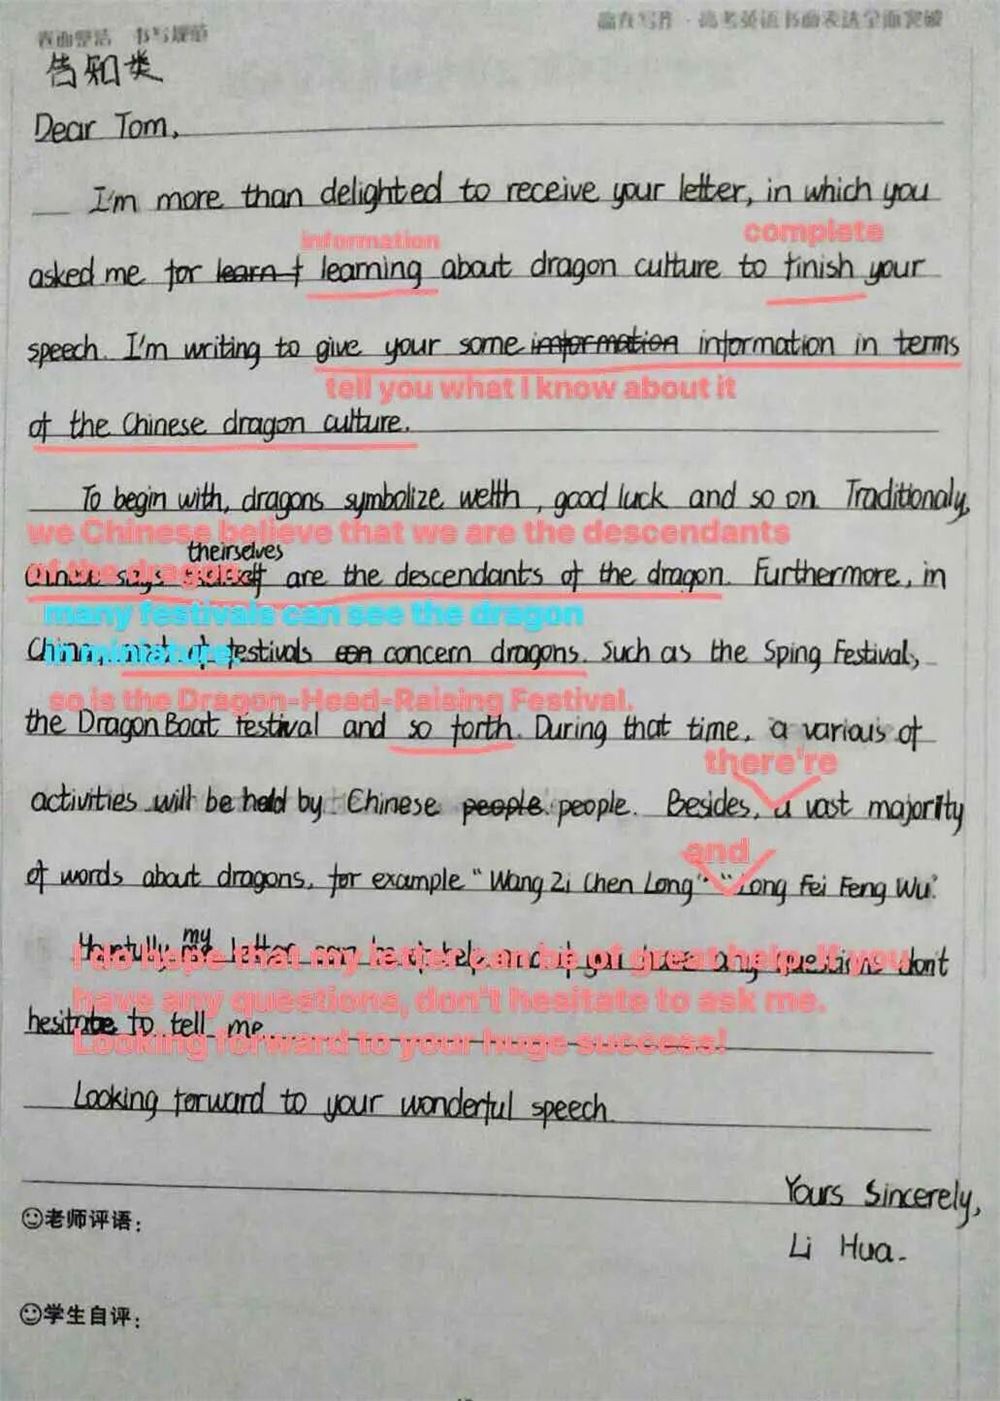 表面整洁 书写规范 赢在写作 · 高考英语书面表达全面突破
告知类
Dear Tom,
I'm more than delighted to receive your letter, in which you
information complete
asked me for learn f learning about dragon culture to finish your
speech. I'm writing to give your some imformation information in terms
tell you what I know about it
of the Chinese dragon culture.
To begin with, dragons symbolize welth, good luck and so on. Traditionaly,
we Chinese believe that we are the descendants
theirselves
of the dragon
says are the descendants of the dragon. Furthermore, in
many festivals can see the dragon
in miniature
China, festivals can concern dragons. Such as the Sping Festival,
so is the Dragon-Head-Raising Festival.
the Dragon Boat festival and so forth. During that time, a various of
there're
activities will be held by Chinese people people. Besides, a vast majority
and
of words about dragons, for example "Wang Zi Chen Long" "Long Fei Feng Wu".
my
I do hope that my letter can be of great help. If you
letter can be help and if you have any questions don't
have any questions, don't hesitate to ask me.
hesitate to tell me
Looking forward to your huge success!
Looking forward to your wonderful speech.
Yours Sincerely,
老师评语:
Li Hua.
学生自评: